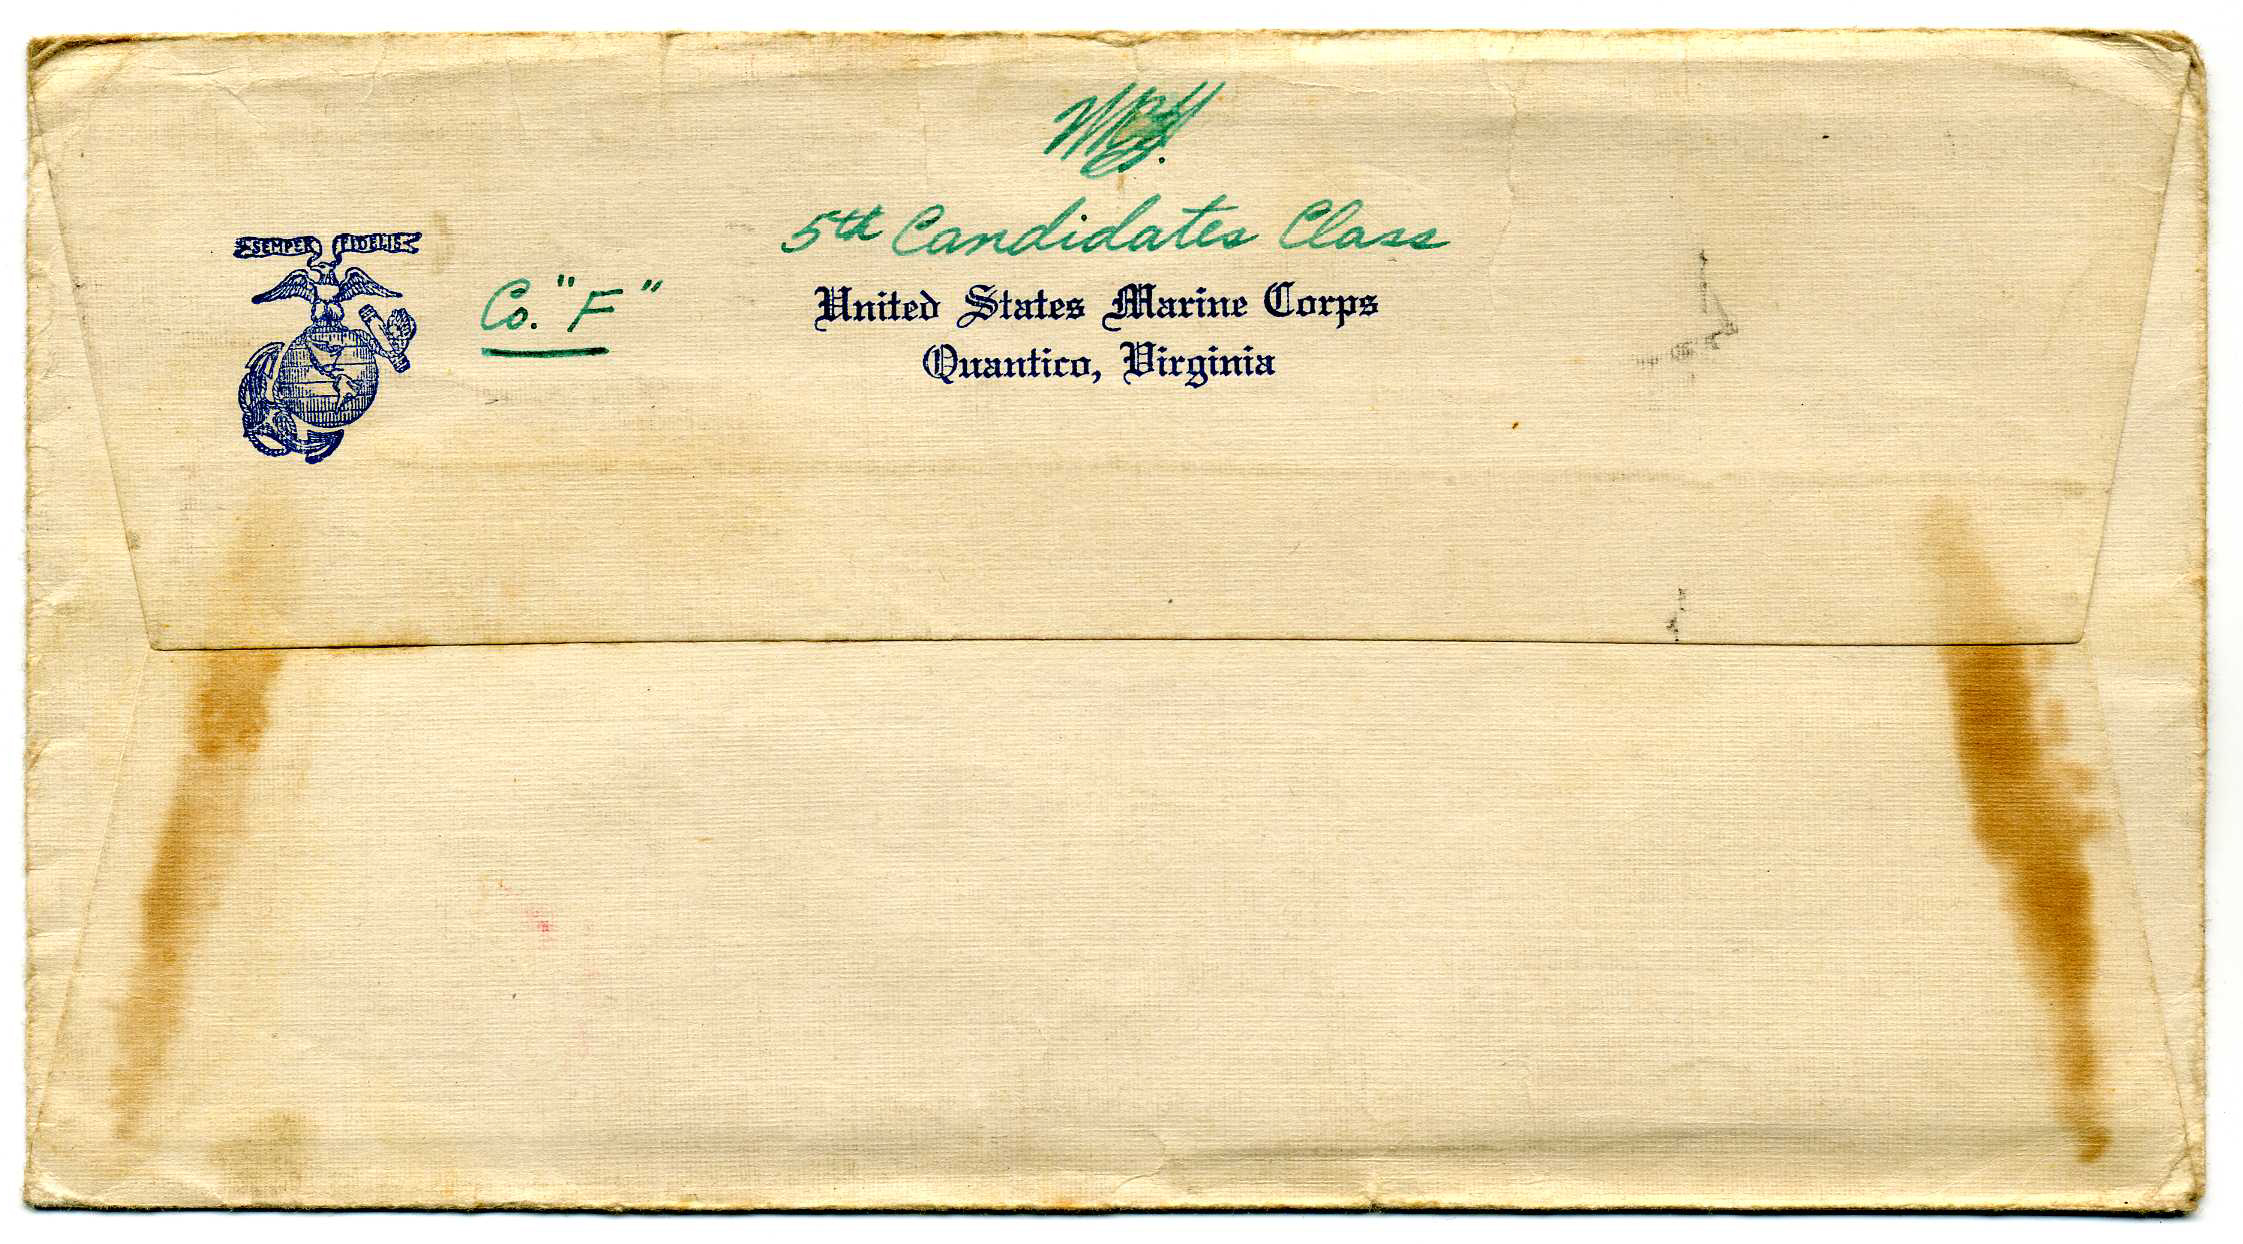 SEMPER FIDELIS
5th Candidates Class
Co. "F"
United States Marine Corps
Quantico, Virginia